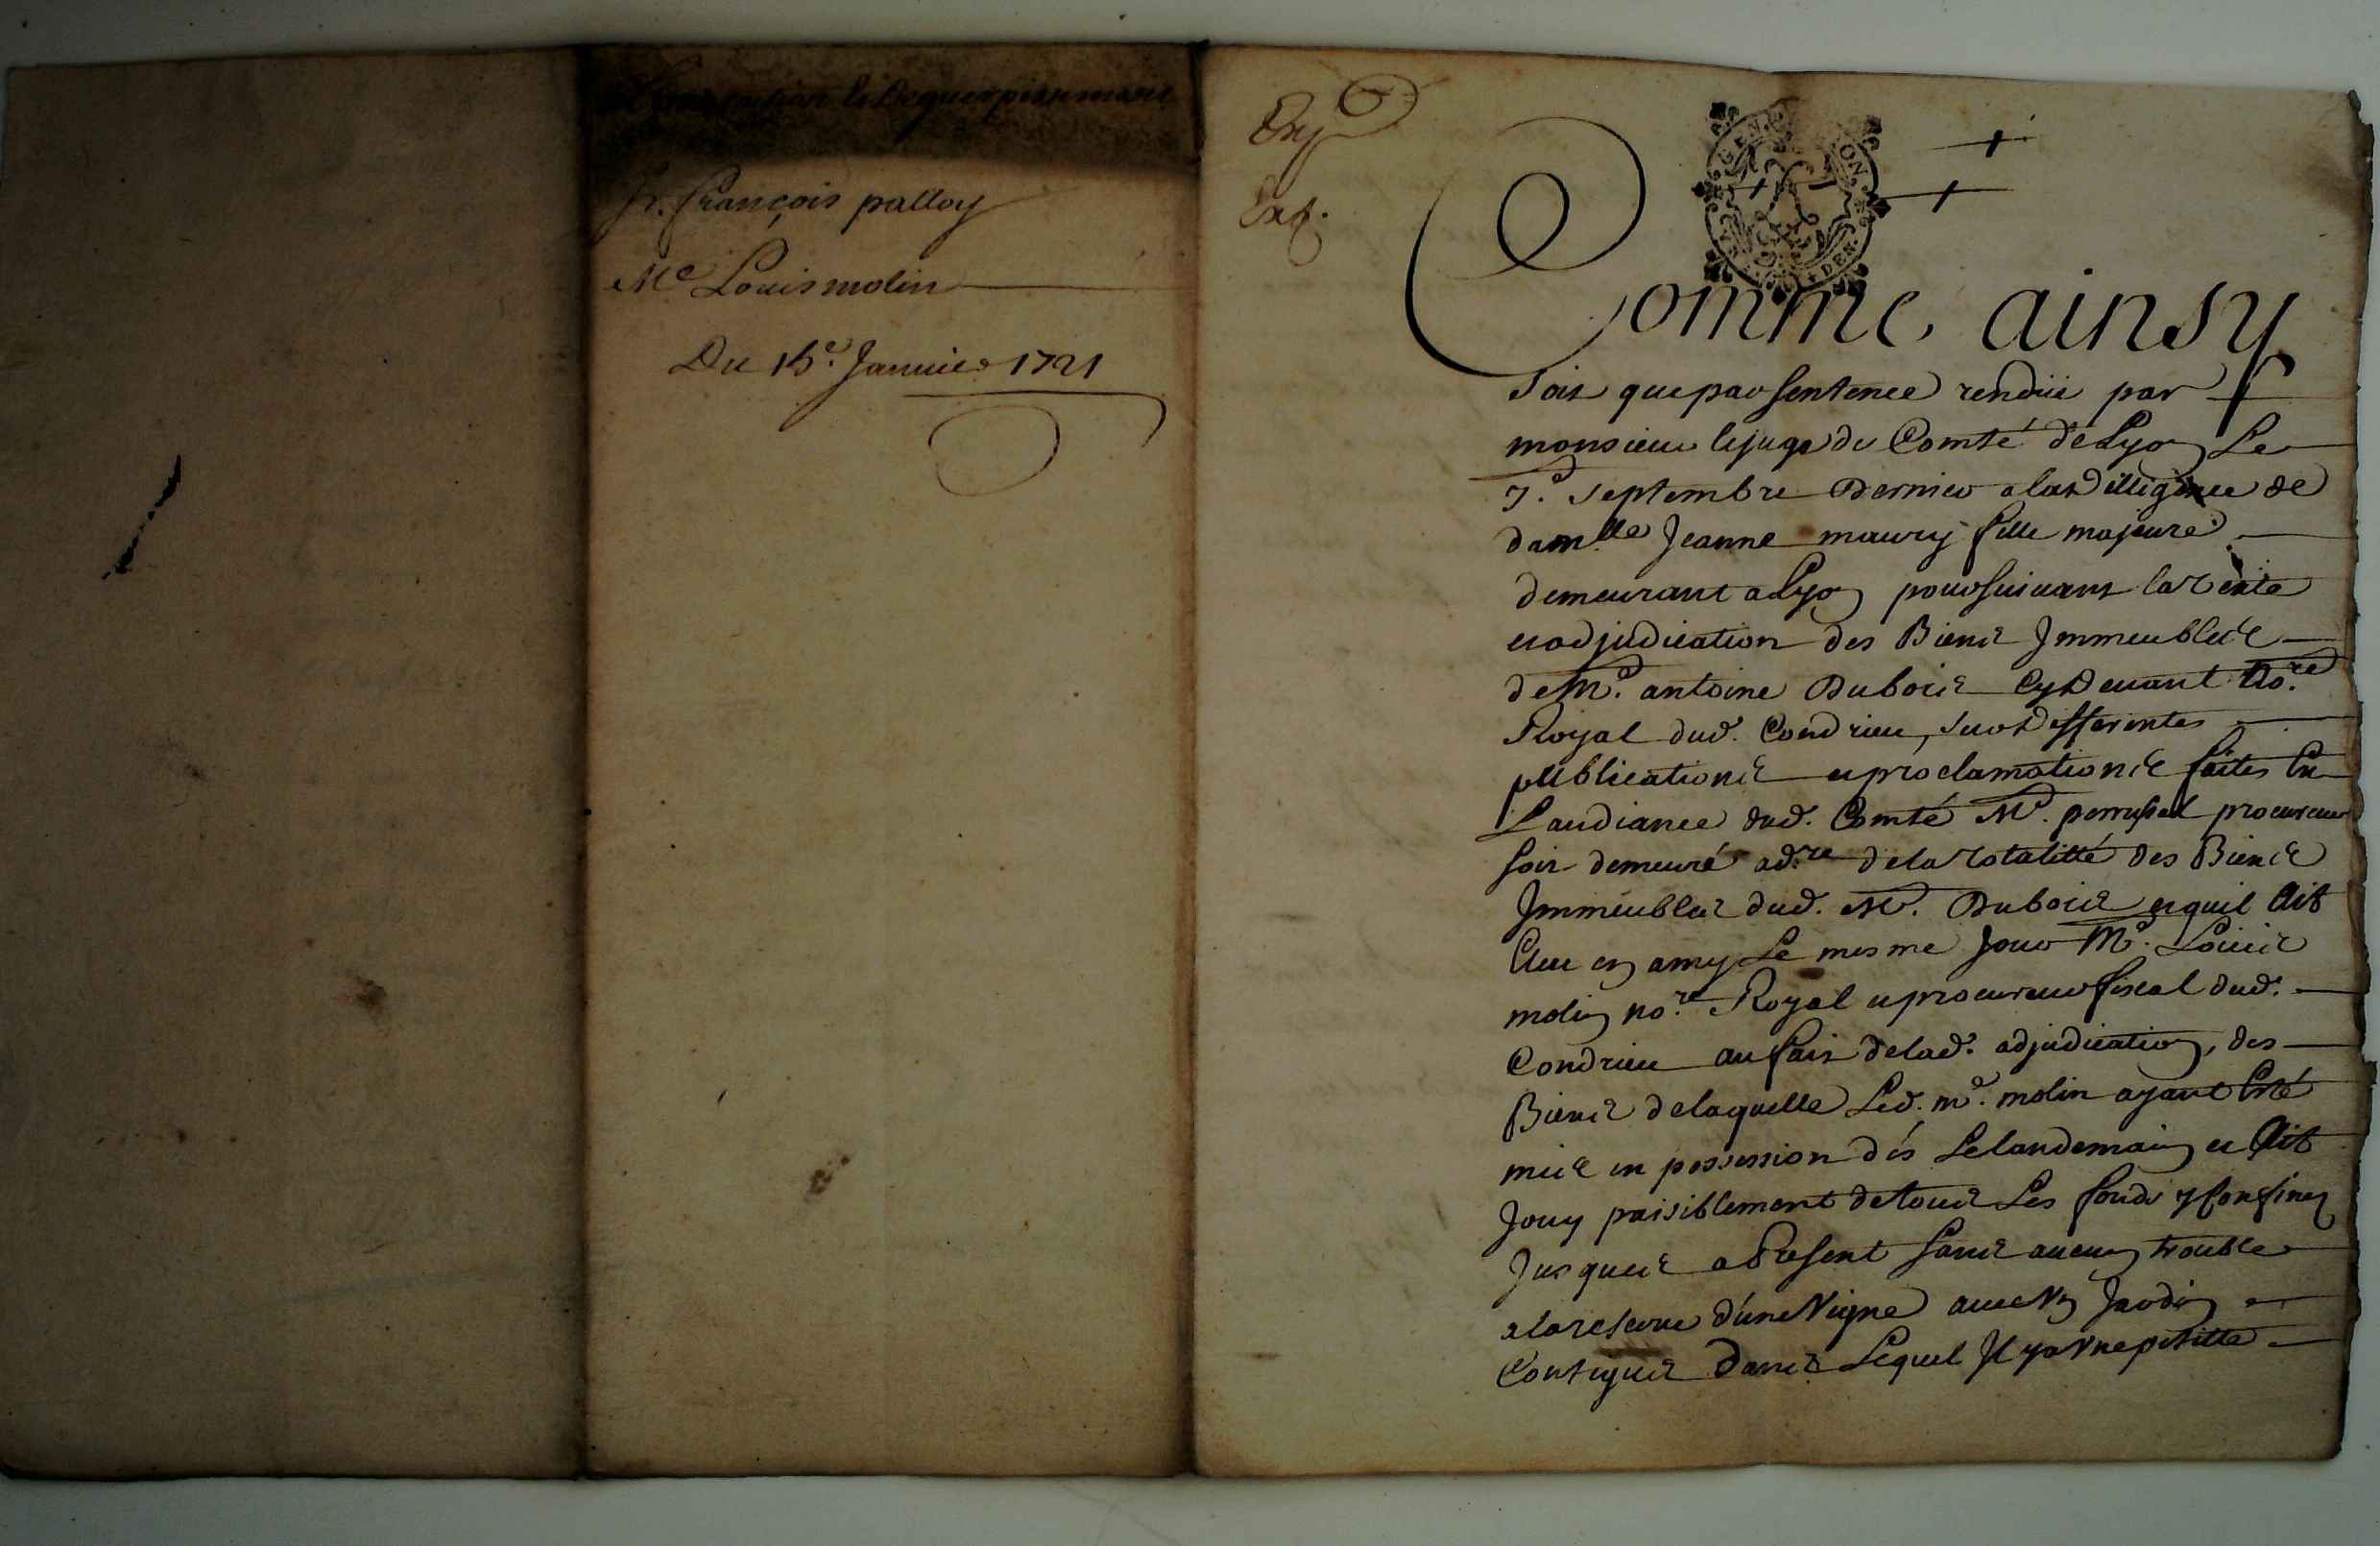 deguerpissement
Sr. françois palloy
Me Louis molin
Du 15e. Januier 1721
Exp
Ext.
GEN
ON
DEN.
Comme ainsy
soit que par sentence rendüe par
monsieur le juge du Comté de Lyon Le
7e. septembre dernier a la dilligence de
dam.lle Jeanne maury fille majeure
demeurant a Lyon poursuiuant la vente
et adjudication des Biens Immeubles
de Me. antoine Dubois Cy deuant no.re
Royal dud. Condrieu, sur differentes
publications et proclamations faites En
Laudiance dud. Comté Me. perrussel procureur
soit demeuré ad.re de la totalitté des Biens
Immeubles dud. Me. Dubois et quil Ait
Eleu en amy Le mesme jour Me. Loüis
molin no.re Royal et procureur fiscal dud.
Condrieu au fait de lad. adjudication, des
Biens de laquelle Led. me. molin ayant Esté
mis en possession dés Le landemain et Ait
Jouy paisiblement de tous Les fonds y Confinez
Jusques a Present sans aucun trouble
a la reserue d'une Vigne auec Vn Jardin
Contigus dans Lequel Il y a Vne petitte